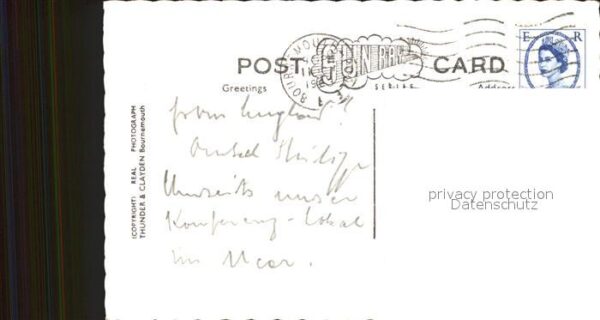 POST CARD
Greetings
SERIES
Address
E R
BOURNEMOU
(COPYRIGHT) REAL PHOTOGRAPH
THUNDER & CLAYDEN Bournemouth
from England!
Onkel Philipp
Umseits unser
Konferenz-Lokal
im Meer.
privacy protection
Datenschutz